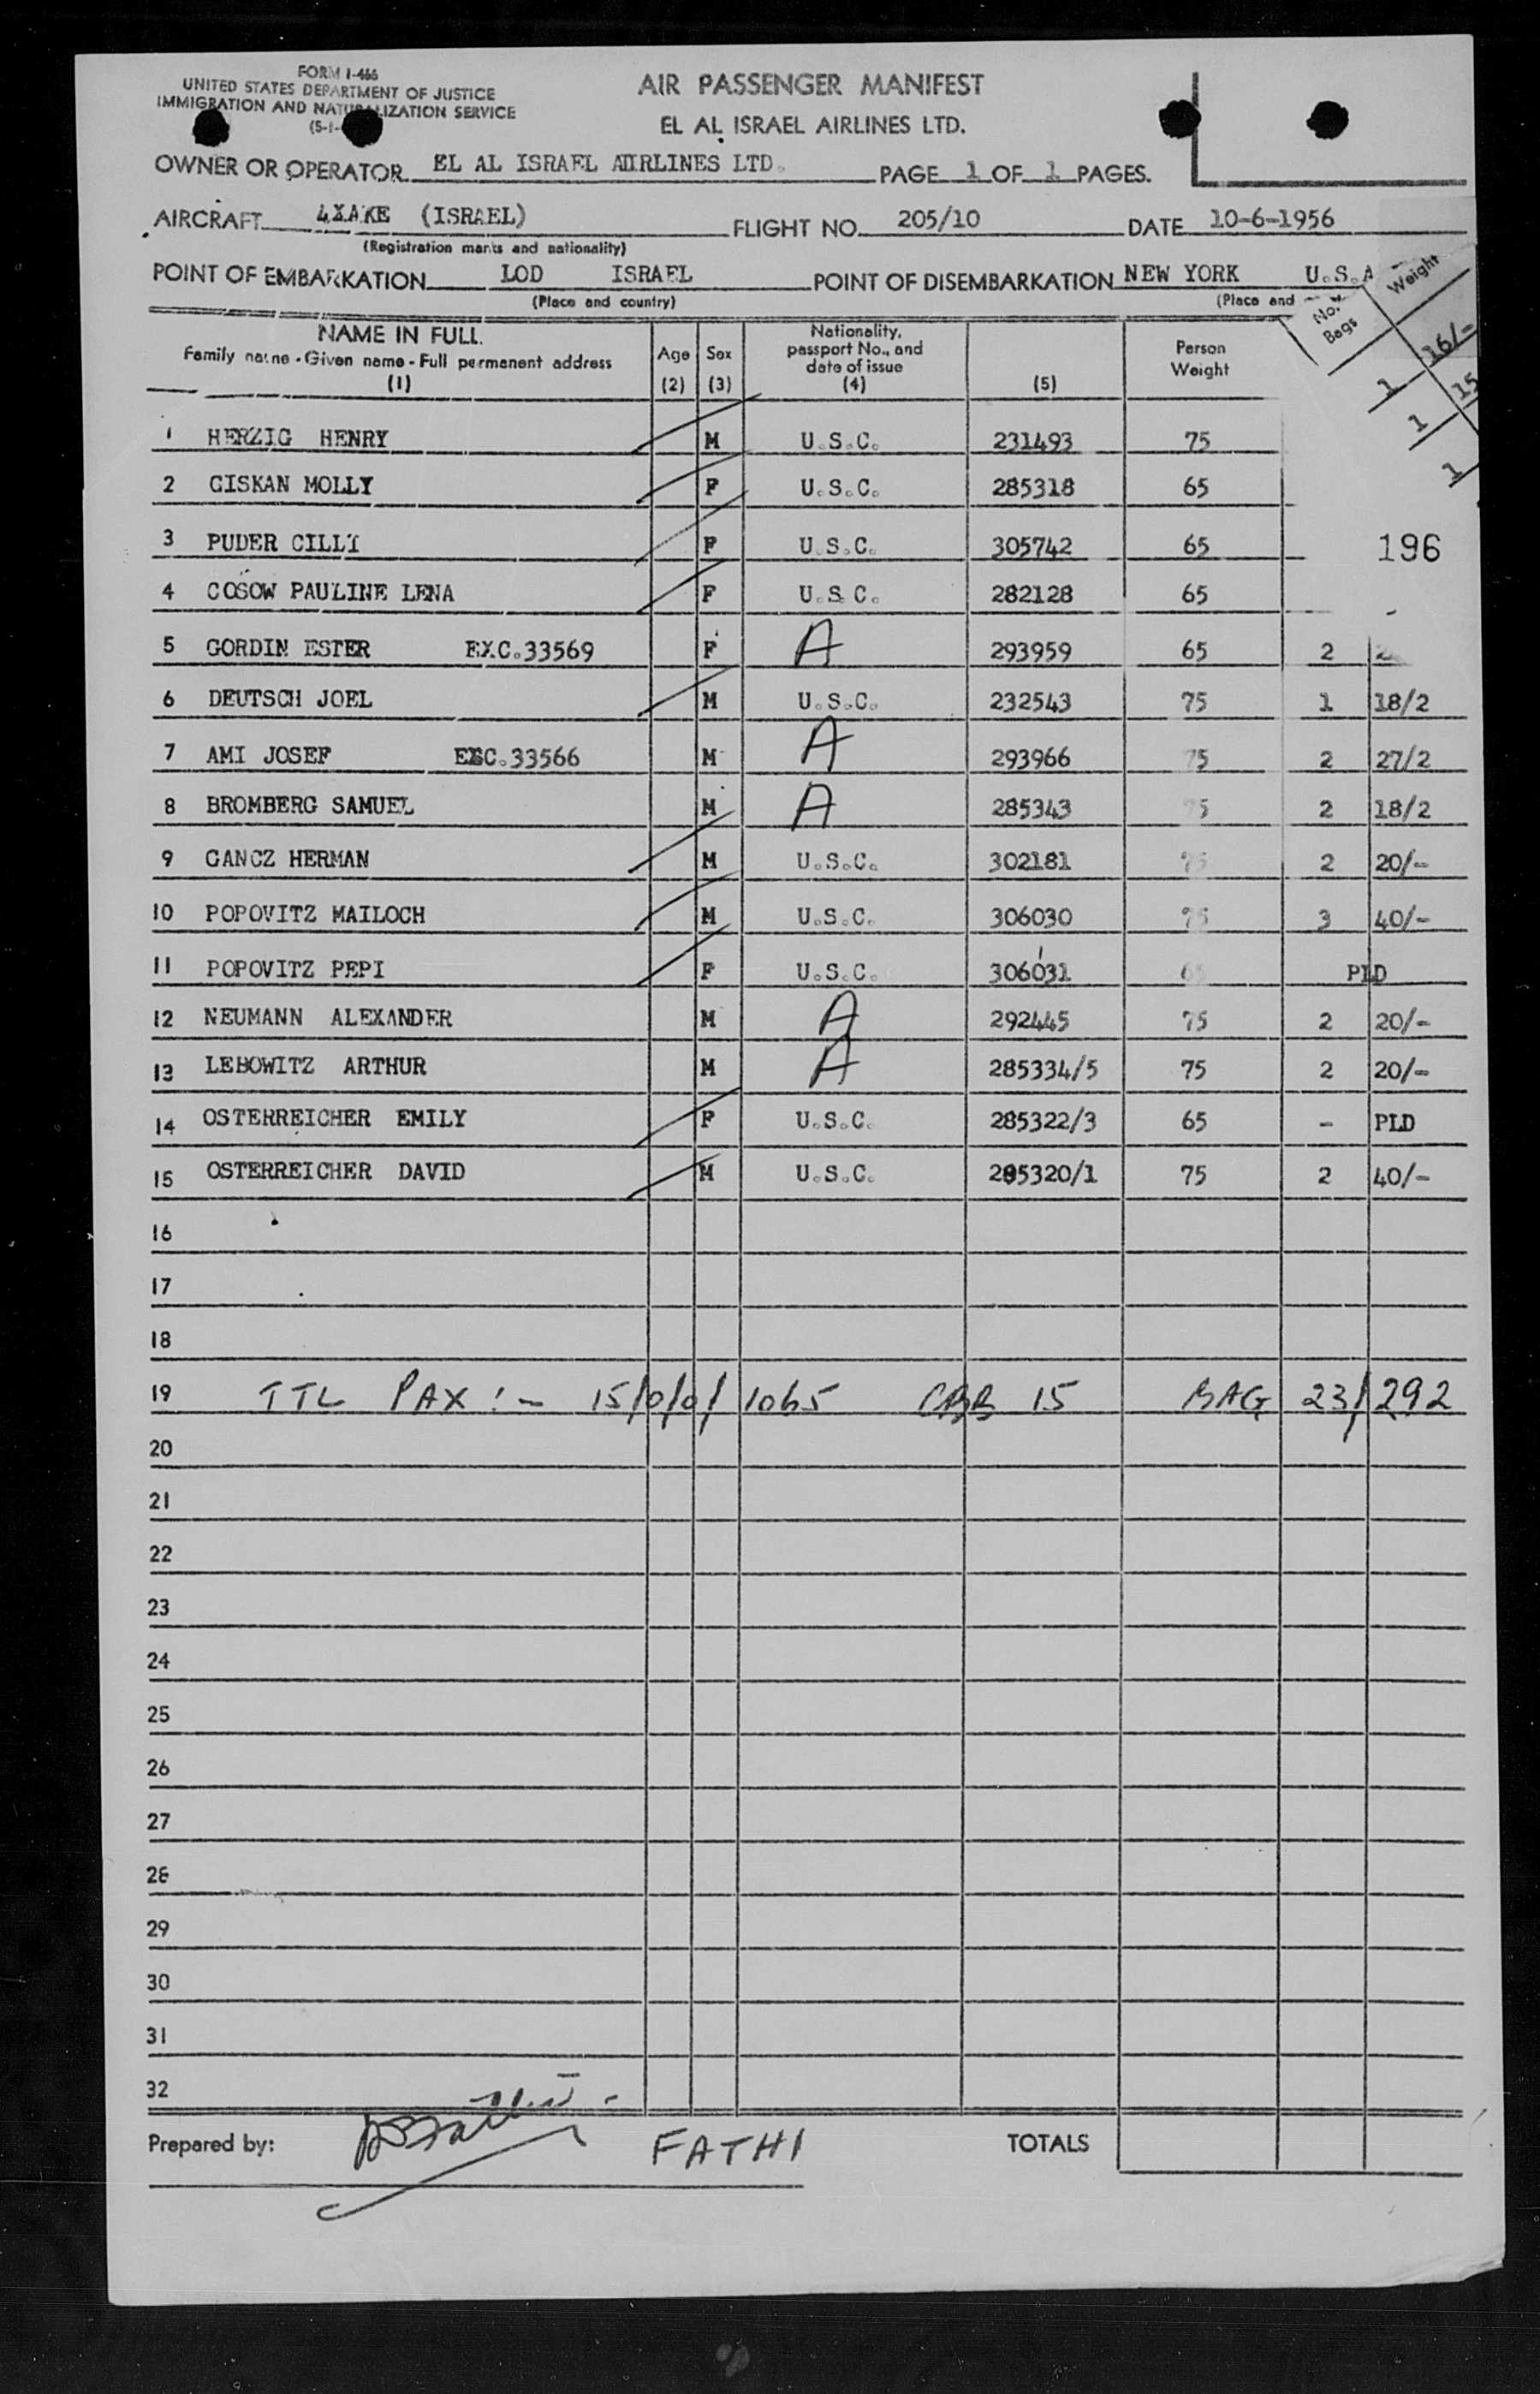 FORM I-466
UNITED STATES DEPARTMENT OF JUSTICE
IMMIGRATION AND NATURALIZATION SERVICE
(5-1-
AIR PASSENGER MANIFEST
EL AL ISRAEL AIRLINES LTD.
OWNER OR OPERATOR EL AL ISRAEL AIIRLINES LTD. PAGE 1 OF 1 PAGES.
AIRCRAFT 4XAKE (ISRAEL) FLIGHT NO. 205/10 DATE 10-6-1956
(Registration marks and nationality)
POINT OF EMBARKATION LOD ISRAEL POINT OF DISEMBARKATION NEW YORK U.S.A
(Place and country) (Place and
NAME IN FULL.
Family name - Given name - Full permanent address
(1)
Age
(2)
Sex
(3)
Nationality,
passport No., and
date of issue
(4)
(5)
Person
Weight
No.
Bags
Weight
1 16/-
1 15
1
1 HERZIG HENRY M U.S.C. 231493 75
2 GISKAN MOLLY F U.S.C. 285318 65
3 PUDER CILLI F U.S.C. 305742 65
196
4 COSOW PAULINE LENA F U.S.C. 282128 65
5 GORDIN ESTER EXC.33569 F A 293959 65 2
6 DEUTSCH JOEL M U.S.C. 232543 75 1 18/2
7 AMI JOSEF EXC.33566 M A 293966 75 2 27/2
8 BROMBERG SAMUEL M A 285343 75 2 18/2
9 GANCZ HERMAN M U.S.C. 302181 75 2 20/-
10 POPOVITZ MAILOCH M U.S.C. 306030 75 3 40/-
11 POPOVITZ PEPI F U.S.C. 306031 65 PLD
12 NEUMANN ALEXANDER M A 292445 75 2 20/-
13 LEBOWITZ ARTHUR M A 285334/5 75 2 20/-
14 OSTERREICHER EMILY F U.S.C. 285322/3 65 - PLD
15 OSTERREICHER DAVID M U.S.C. 285320/1 75 2 40/-
16
17
18
19 TTL PAX :- 15/0/0/ 1065 CBB 15 BAG 23/292
20
21
22
23
24
25
26
27
28
29
30
31
32
Prepared by: FATHI TOTALS